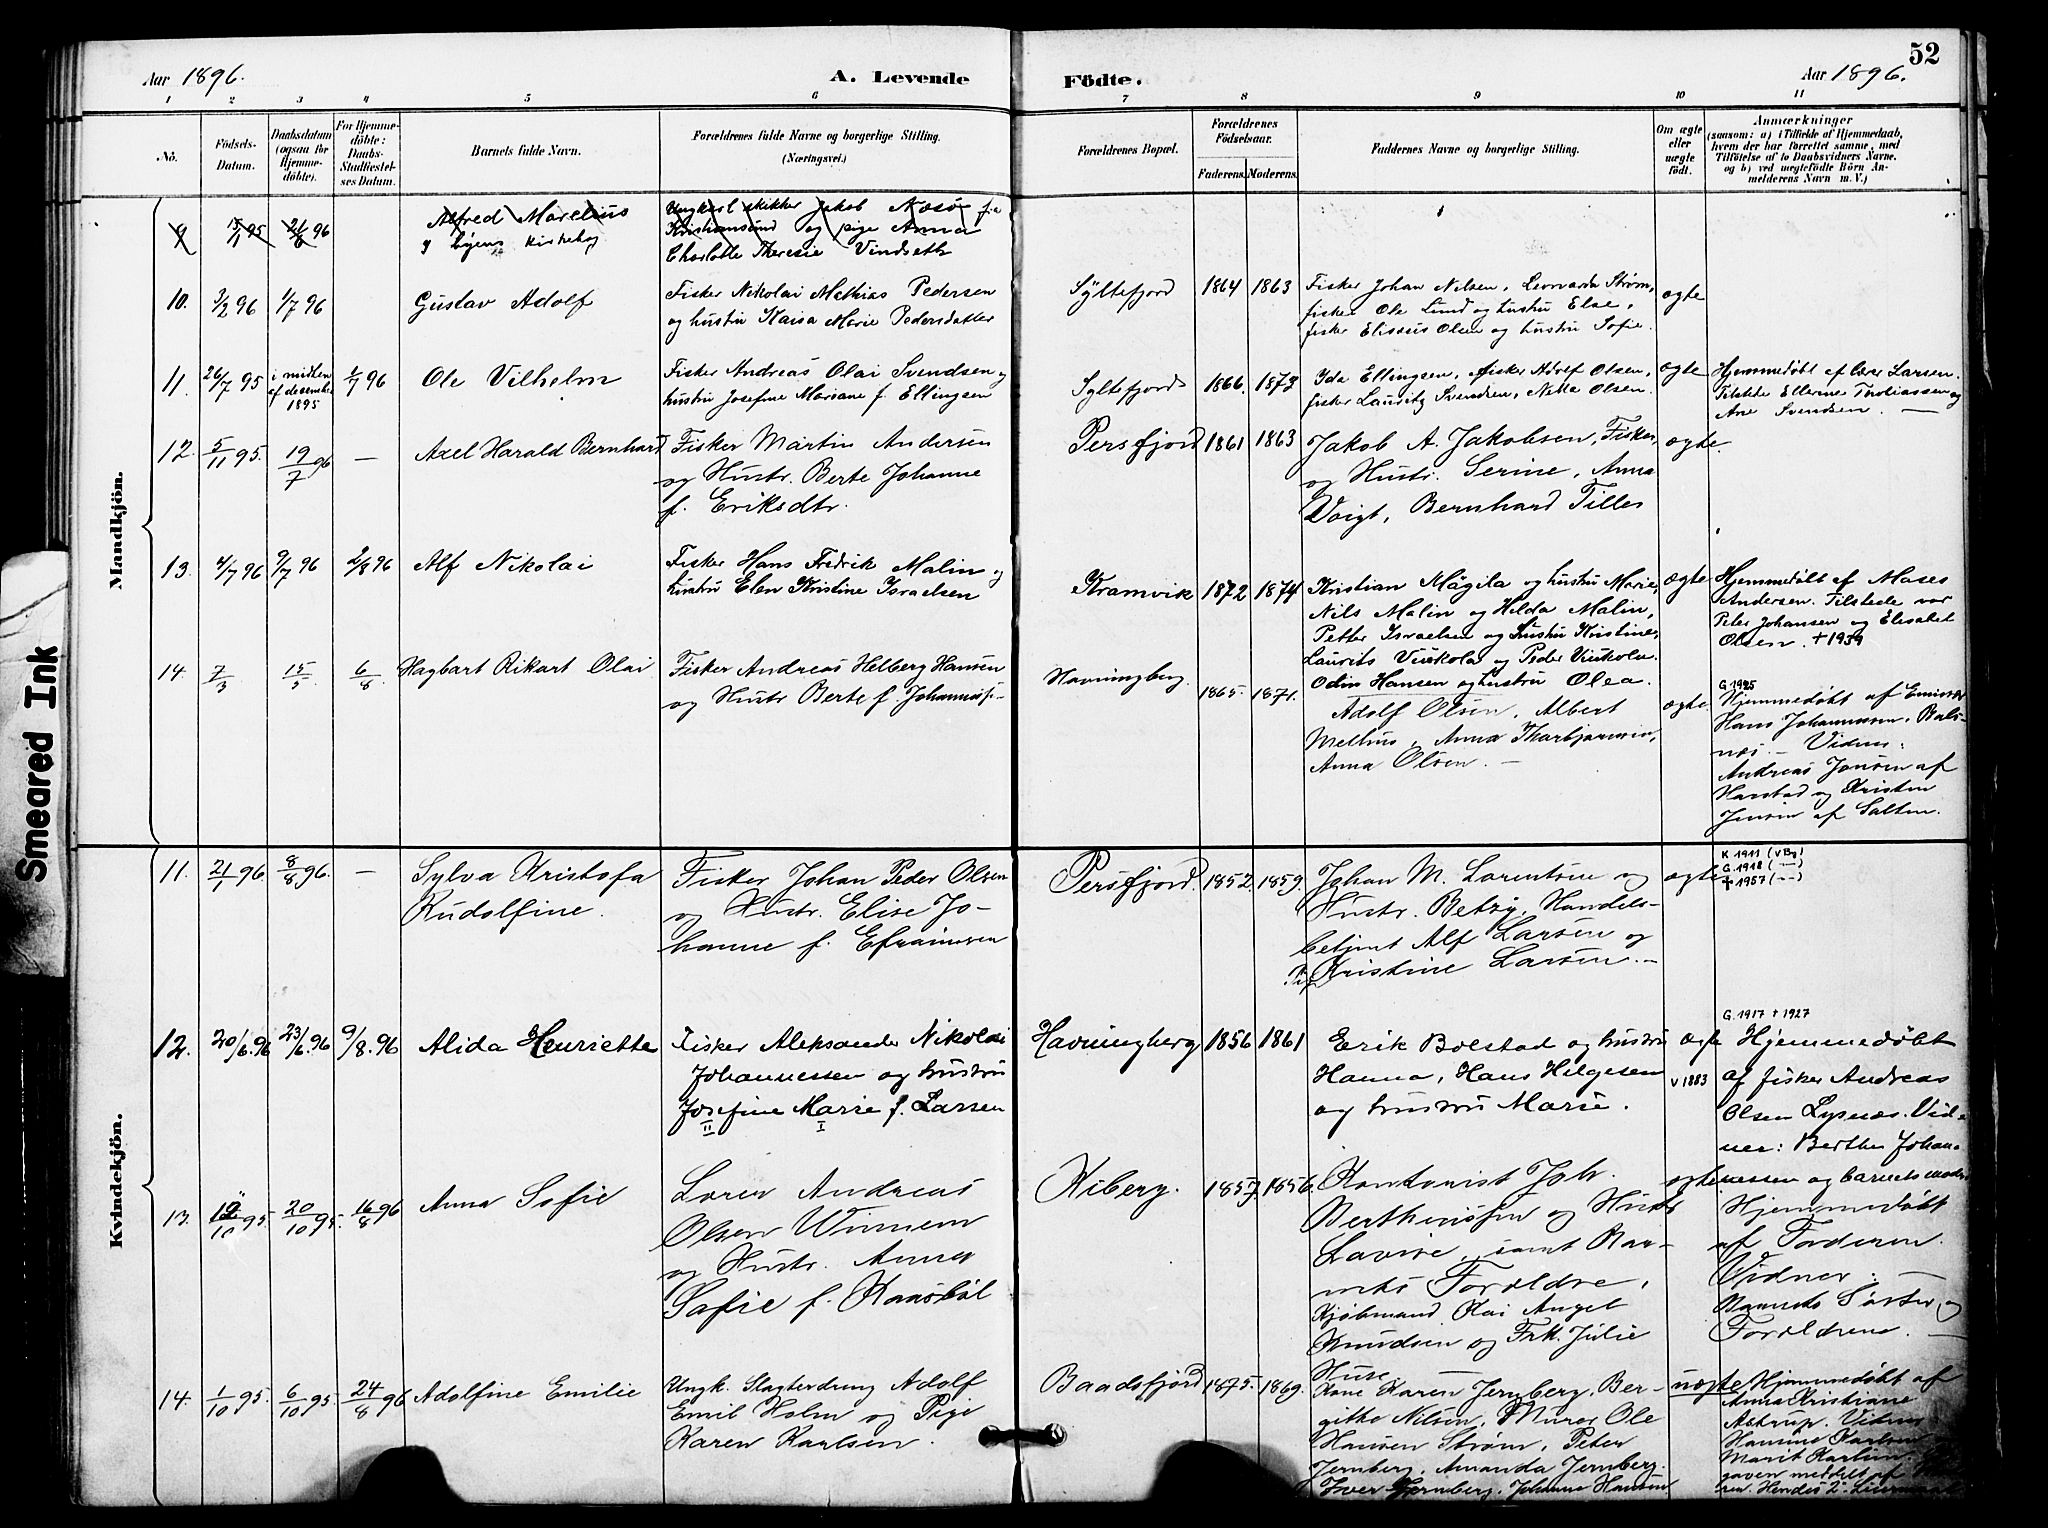 52
Aar 1896.
A. Levende
Födte.
Aar 1896.
1 2 3 4 5 6 7 8 9 10 11
Nô.
Födsels-
Datum.
Daabsdatum
(ogsaa for
Hjemme-
döbte).
For Hjemme-
döbte:
Daabs-
Stadfæstel-
ses Datum.
Barnets fulde Navn.
Forældrenes fulde Navne og borgerlige Stilling.
(Næringsvei.)
Forældrenes Bopæl.
Forældrenes
Födselsaar.
Faderens. Moderens.
Faddernes Navne og borgerlige Stilling.
Om ægte
eller
uægte
födt.
Anmærkninger
(saasom: a) i Tilfælde af Hjemmedaab,
hvem der har forrettet samme, med
Tilföielse af to Daabsvidners Navne,
og b) ved uægtefödte Börn An-
melderens Navn m. V.)
Mandkjön.
9 Alfred Marelius
kirkebog
Ungkarl skikker Jakob Næsø fra
Kristiansund og pige Anna
Charlotte Theresie Vindseth
10. 3/2 96 1/7 96 Gustav Adolf
Fisker Nikolai Mathias Pedersen
og hustru Kaisa Marie Pedersdatter
Syltefjord 1864 1863
Fisker Johan Nilsen, Leonarda Strøm,
fisker Ole Lund og hustru Else,
fisker Elisæus Olsen og hustru Sofie.
ægte
11. 26/7 95 i midten
af desember
1895
1/7 96 Ole Vilhelm
Fisker Andreas Olai Svendsen og
hustru Josefine Mariane f. Ellingsen
Syltefjord 1866. 1873
Ida Ellingsen, fisker Adolf Olsen,
fisker Lauritz Svendsen, Netta Olsen.
ægte
Hjemmedøbt af lærer Larsen.
Tilstede Ellerine Tobiassen og
Ane Svendsen.
12. 5/11 95. 19/7 96 — Axel Harald Bernhard
Fisker Martin Andersen
og Hustr. Berte Johanne
f. Eriksdtr.
Persfjord 1861 1863
Jakob A. Jakobsen, Fisker,
og Hustr. Serine, Anna
Voigt, Bernhard Tilles
ægte.
13. 4/7 96 9/7 96 2/8 96 Alf Nikolai
Fisker Hans Fredrik Malin og
hustru Elen Kristine Israelsen
Kramvik 1872 1874
Kristian Mägila og hustru Marie,
Nils Malin og Hilda Malin,
Petter Israelsen og hustru Kristine,
Laurits Viinikola og Peder Viinikola.
Odin Hansen og hustru Olea.
ægte
Hjemmedøbt af Moses
Andersen. Tilstede var
Peter Johansen og Elisabet
Olsen. † 1934
14. 7/3 15/5. 6/8 Hagbart Rikart Olai
Fisker Andreas Helberg Hansen
og Hustr Berte f. Johannesd.
Havningberg. 1865. 1871.
Adolf Olsen, Albert
Melhus, Anna Thorbjørnsen,
Anna Olsen. —
ægte.
G. 1925
Hjemmedøbt af Emissær
Hans Johannessen, Bals-
næs. — Vidner:
Andreas Jensen af
Harstad og Kristen
Jensen af Salten.
Kvindekjön.
11. 21/1 96. 8/8 96. — Sylva Kristofa
Rudolfine.
Fisker Johan Peder Olsen
og Hustr. Elise Jo-
hanne f. Efraimsen
Persfjord. 1852. 1859.
Johan M. Lorentsen og
Hustr. Betzy, Handels-
betjent Alf Larsen og
Kristine Larsen. —
ægte
K 1911 (v By)
G. 1918 (—)
† 1957 (—)
12. 20/6. 96 23/6. 96 9/8. 96 Alida Henriette
Fisker Aleksander Nikolai
Johannessen og hustru
Josefine Marie f. Larsen
II I
Havningberg 1856 1861
Erik Bolstad og hustru
Hanna, Hans Helgesen
og hustru Marie.
ægte
V 1883
G. 1917 † 1927
Hjemmedøbt
af fisker Andreas
Olsen Lysnæs. Vid-
ner: Berther Johan-
nessen og barnets moder
13. 12/10 95. 20/10 95. 16/8 96 Anna Sofie
Lærer Andreas
Olsen Winnem
og Hustr. Anna
Sofie f. Kaasböl
Kiberg. 1857 1856.
Kontorist Joh.
Berthinssen og Hustr
Lovise, samt Bar-
nets Forældre,
Kjøbmand Kai Angel
Knudsen og Frk. Julie
Huse
ægte
Hjemmedøbt
af Faderen.
Vidner: —
Barnets Søster og
Forældrene. —
14. 1/10 95. 6/10 95. 24/8 96 Adolfine Emilie
Ungk. Slagterdreng Adolf
Emil Holm og Pige
Karen Karlsen.
Baadsfjord 1875. 1869.
Kone Karen Jernberg, Ber-
githe Nilsen, Murer Ole
Hansen Strøm, Peter
Jernberg, Amanda Jernberg.
Iver Jernberg, Johanne Hansen
uægte
Hjemmedøbt af
Anna Kristiane
Astrup. Vidner
Hansine Karlsen
Marit Karlsen.
Smeared Ink